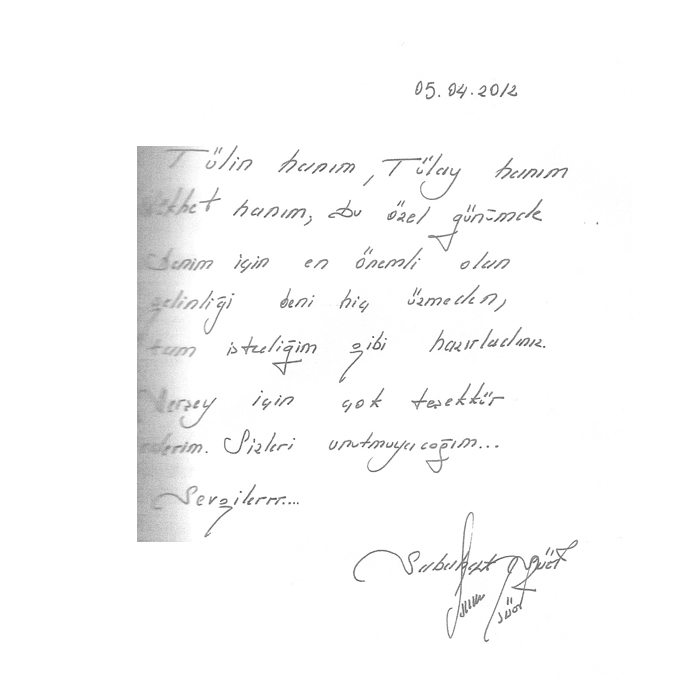 05.04.2012
Tülin hanım, Tülay hanım
hanım, bu özel günümde
benim için en önemli olan
gelinliği beni hiç üzmeden,
tam istediğim gibi hazırladınız.
Herşey için çok teşekkür
ederim. Sizleri unutmuyacağım...
Sevgilerrr....
Sabahat